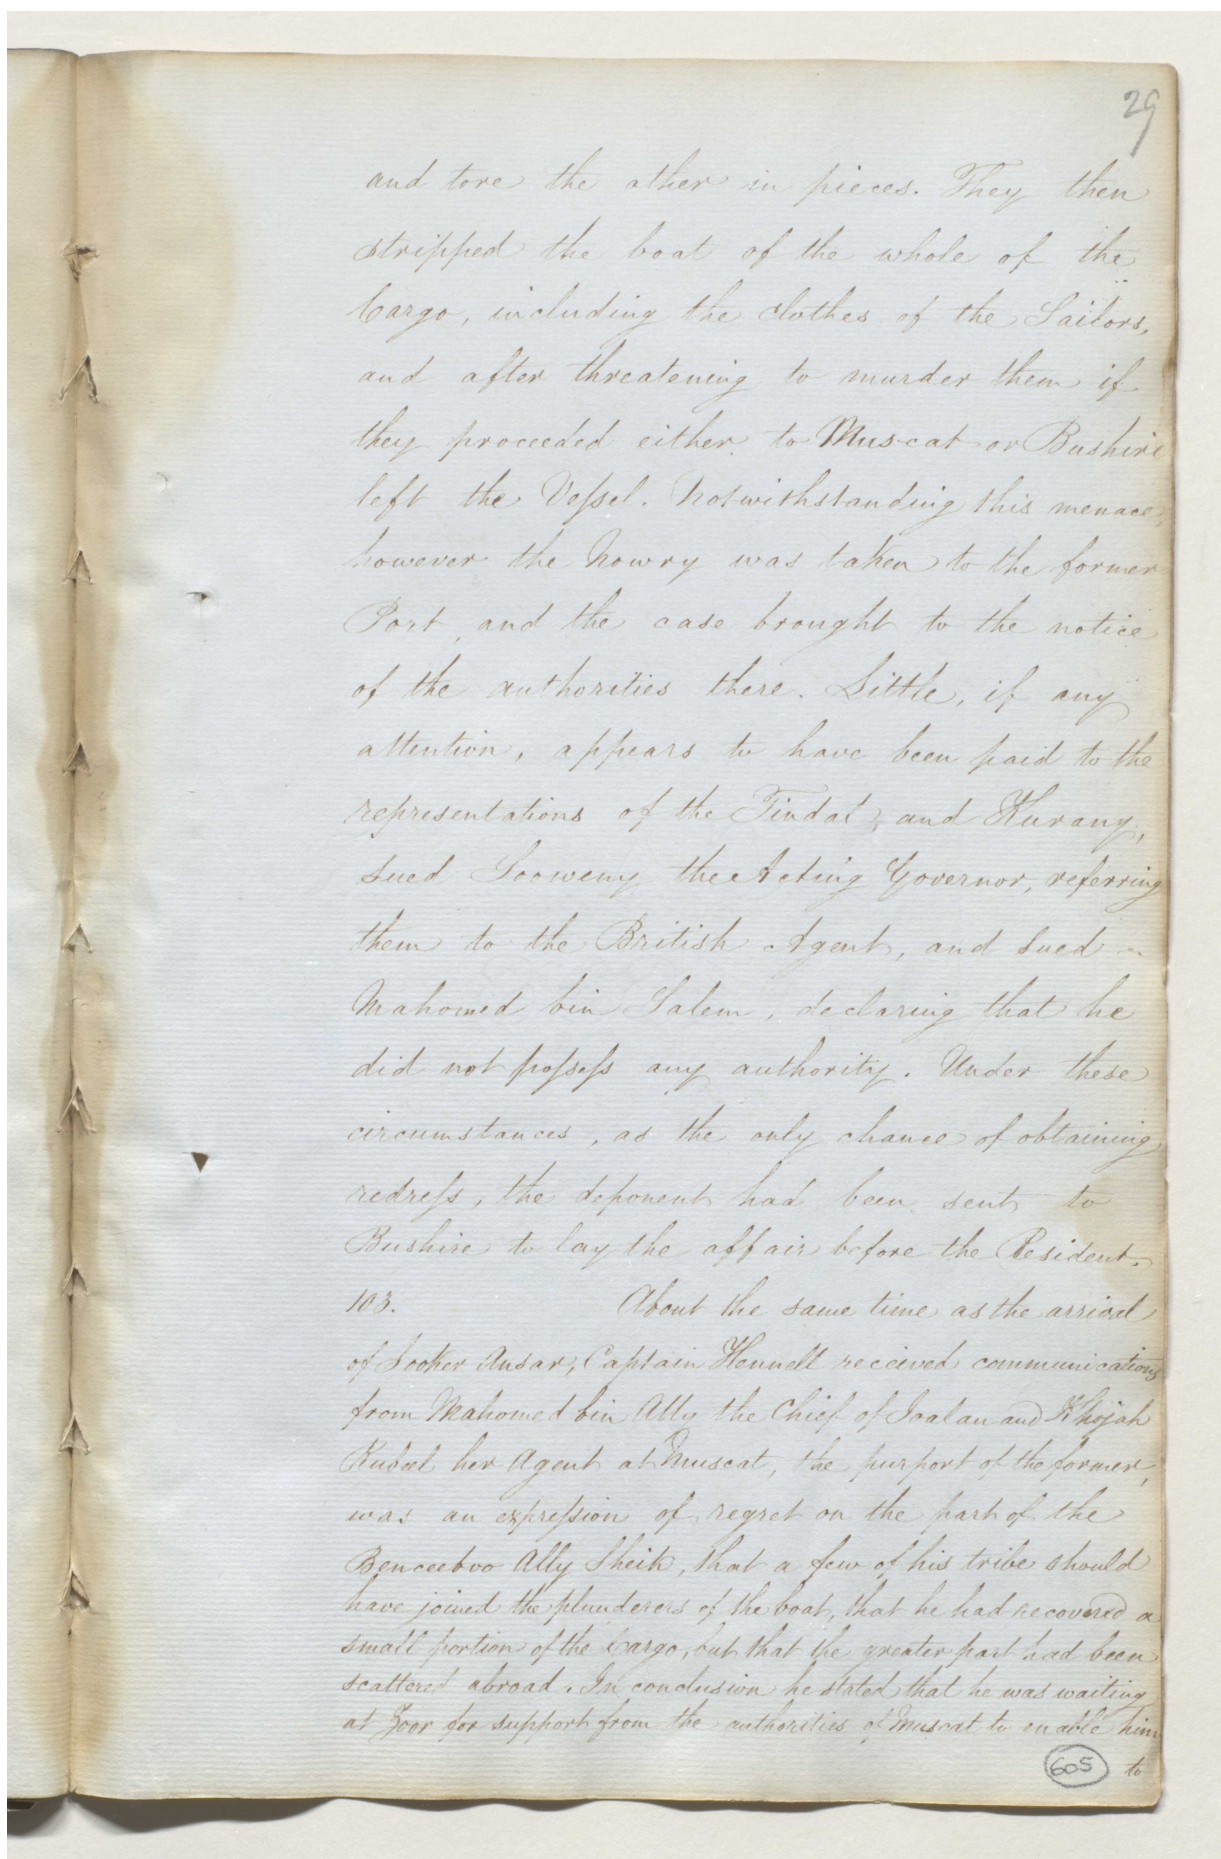 29
and tore the other in pieces. They then
stripped the boat of the whole of the
Cargo, including the clothes of the Sailors,
and after threatening to murder them if
they proceeded either to Muscat or Bushire
left the Veſsel. Notwithstanding this menace,
however the Nowry was taken to the former
Port, and the case brought to the notice
of the authorities there. Little, if any
attention, appears to have been paid to the
representations of the Tindal, and Kurany,
Sued Sooweny the Acting Governor, referring
them to the British Agent, and Sued
Mahomed bin Salem, declaring that he
did not poſseſs any authority. Under these
circumstances, as the only chance of obtaining
redreſs, the deponent had been sent to
Bushire to lay the affair before the Resident.
103. About the same time as the arrival
of Sooker Ansar, Captain Hennell received communications
from Mahomed bin Ally the Chief of Jaalan and Khojah
her Agent at Muscat, the purport of the former,
was an expreſsion of regret on the part of the
Benceeboo Ally Sheik, that a few of his tribe should
have joined the plunderers of the boat, that he had recovered a
small portion of the Cargo, but that the greater part had been
scattered abroad. In conclusion he stated that he was waiting
at Zoor for support from the authorities of Muscat to enable him
605 to